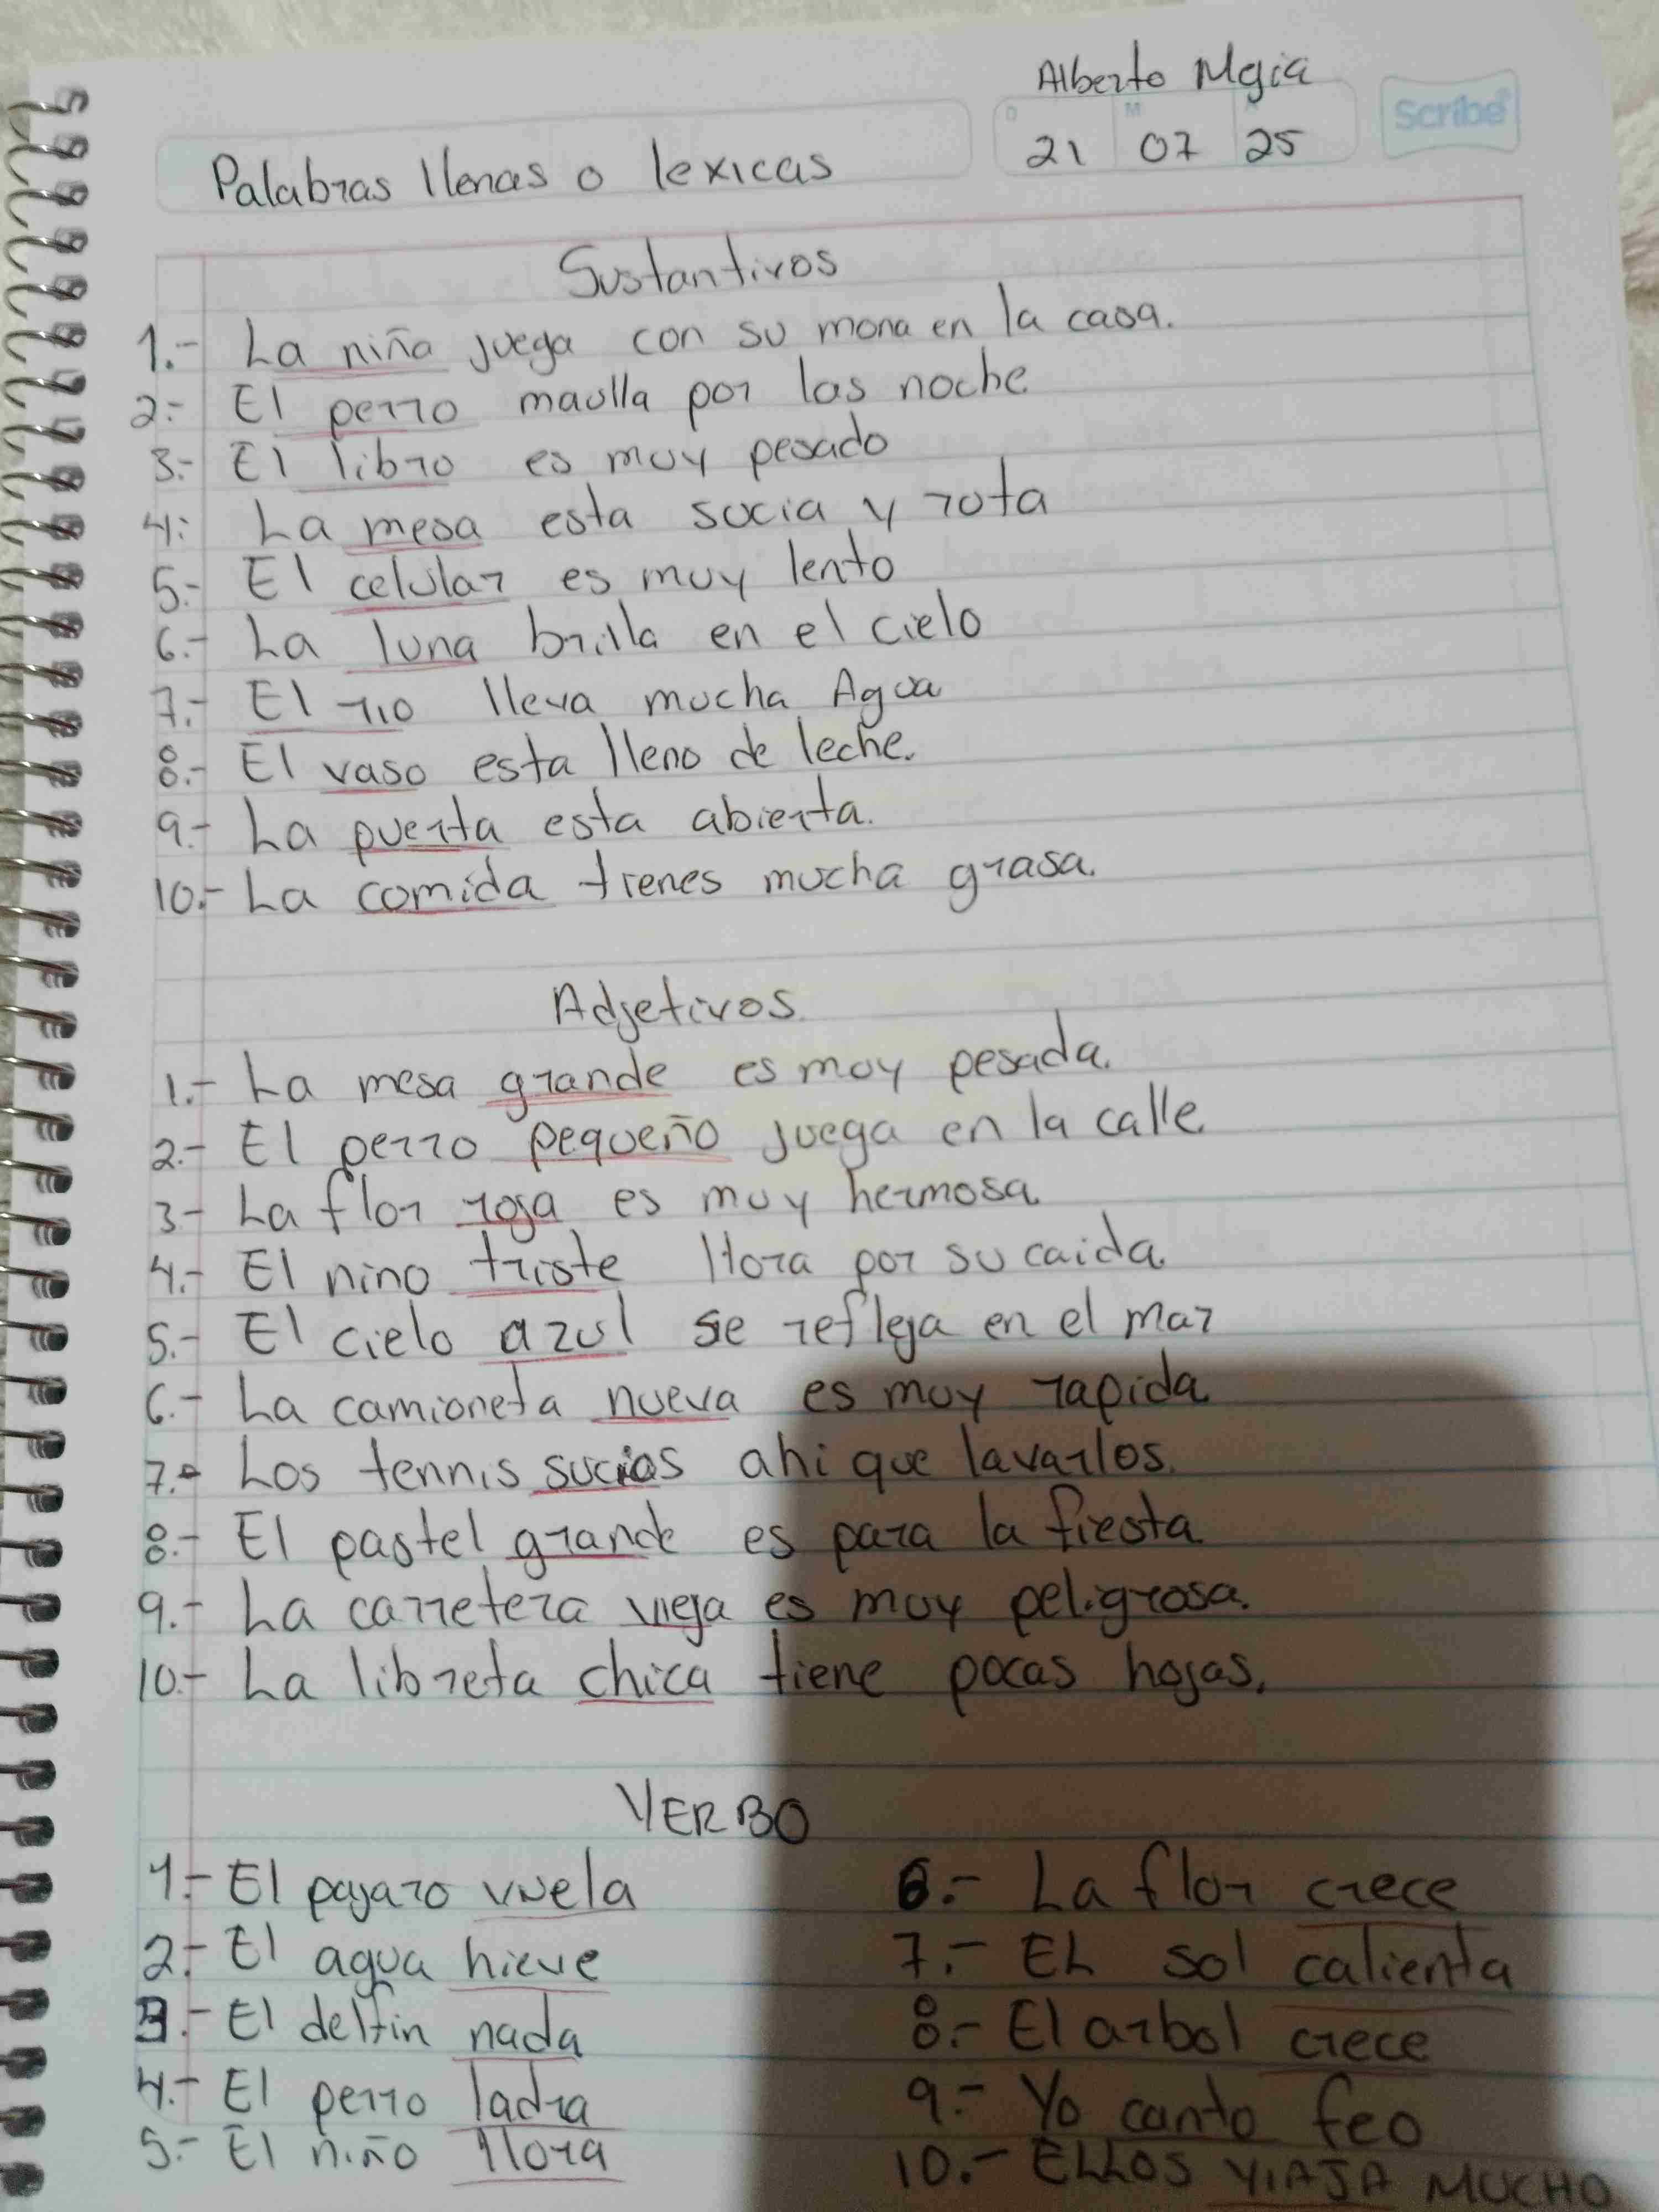 Alberto Mejia
Scribe
D M A
21 07 25
Palabras llenas o lexicas
Sustantivos
1.- La niña juega con su mona en la casa.
2.- El perro maulla por las noche
3.- El libro es muy pesado
4.- La mesa esta sucia y rota
5.- El celular es muy lento
6.- La luna brilla en el cielo
7.- El rio lleva mucha Agua
8.- El vaso esta lleno de leche.
9.- La puerta esta abierta.
10.- La comida tienes mucha grasa.
Adjetivos
1.- La mesa grande es muy pesada.
2.- El perro pequeño juega en la calle.
3.- La flor roja es muy hermosa.
4.- El nino triste llora por su caida.
5.- El cielo azul se refleja en el mar
6.- La camioneta nueva es muy rapida.
7.- Los tennis sucios ahi que lavarlos.
8.- El pastel grande es para la fiesta
9.- La carretera vieja es muy peligrosa.
10.- La libreta chica tiene pocas hojas.
VERBO
1.- El pajaro vuela
2.- El agua hieve
3.- El delfin nada
4.- El perro ladra
5.- El niño llora
6.- La flor crece
7.- EL sol calienta
8.- El arbol crece
9.- Yo canto feo
10.- ELLOS VIAJA MUCHO